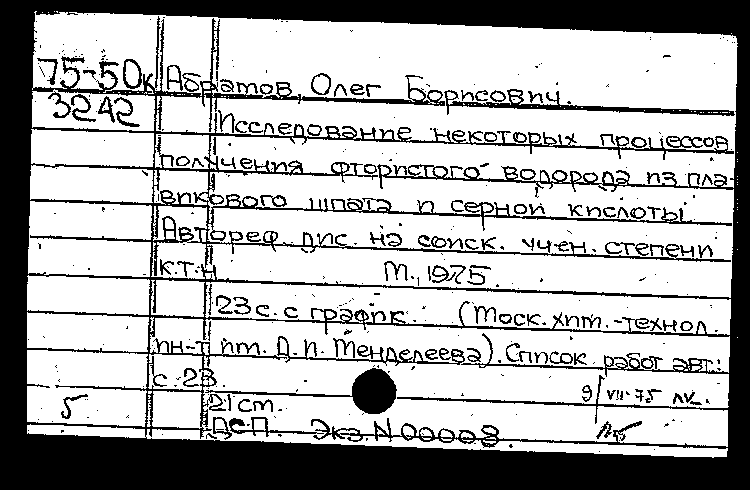 75-50к Абратов, Олег Борисович.
3242
Исследование некоторых процессов
получения фтористого водорода из пла-
викового шпата и серной кислоты.
Автореф. дис. на соиск. учен. степени
к.т.н М., 1975.
23 с. с график. (Моск. хим.-технол.
ин-т им. Д.И. Менделеева). Список работ авт.:
с. 23.
9/VII-75 лк.
5 21 см.
ДСП. Экз. N 00008.